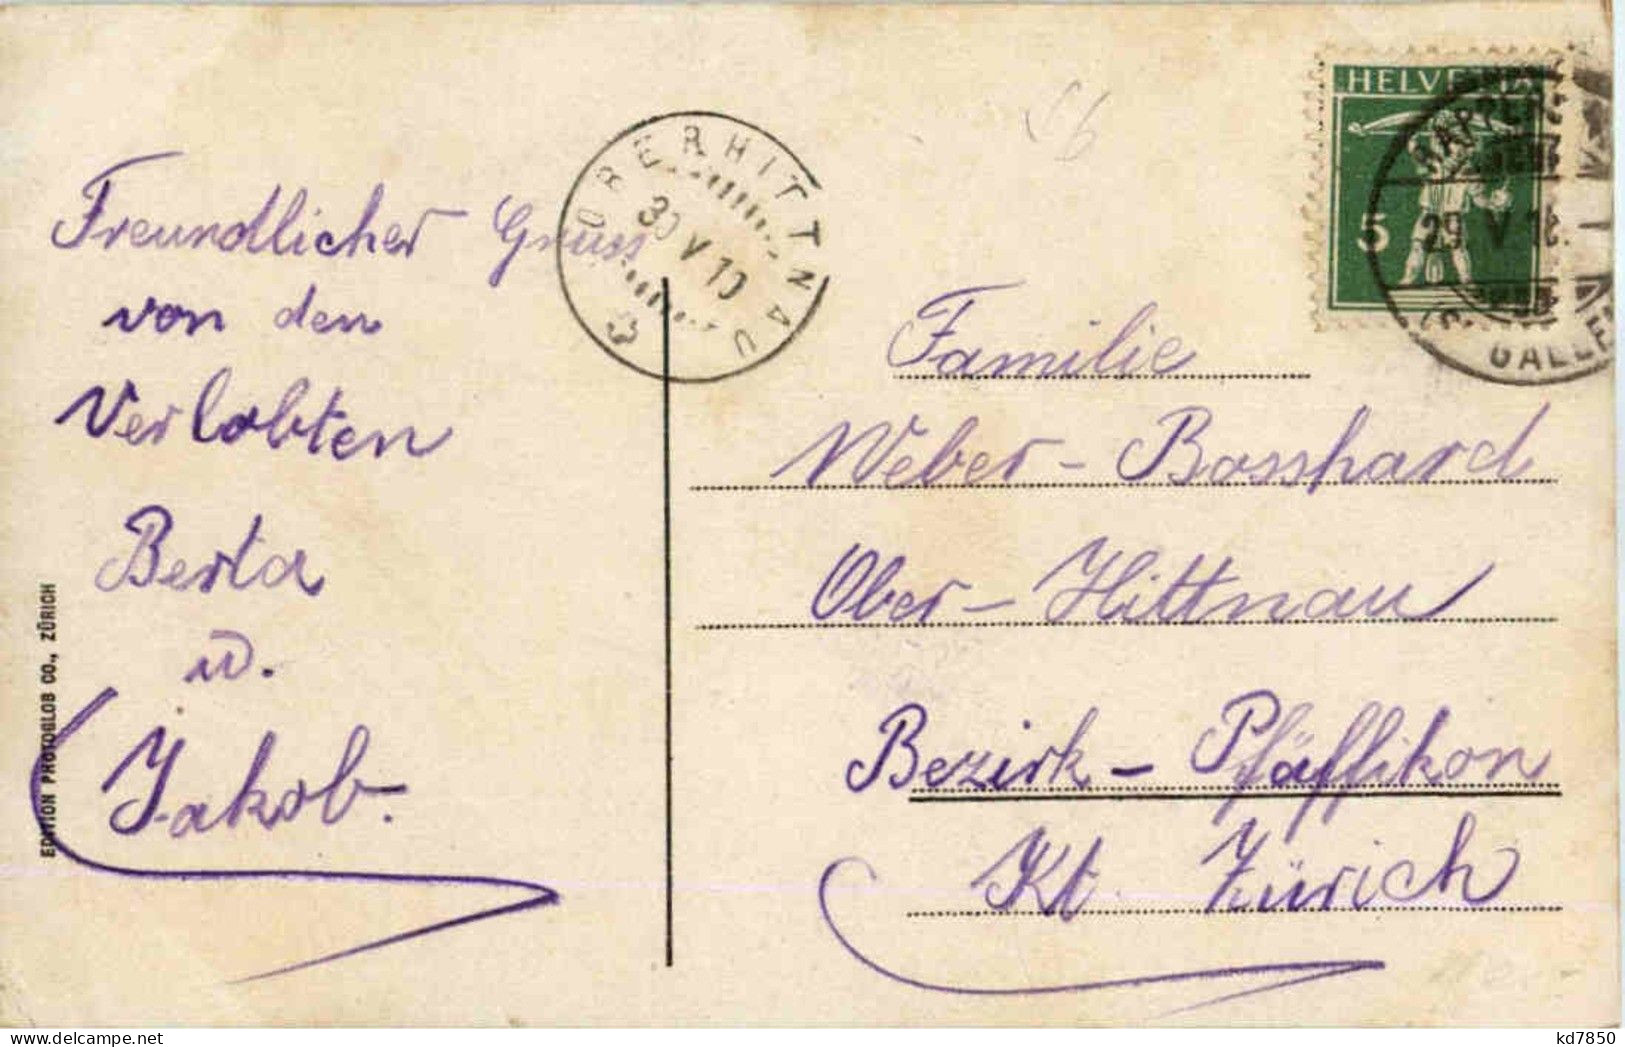 Freundlicher Gruss
von den
Verlobten
Berta
u.
Jakob.
EDITION PHOTOGLOB CO., ZÜRICH
OBERHITTNAU
30 V 10
HELVETIA
5
29. V. 10.
GALLEN
Familie
Weber - Bosshard
Ober - Hittnau
Bezirk - Pfäffikon
Kt. Zürich
kd7850